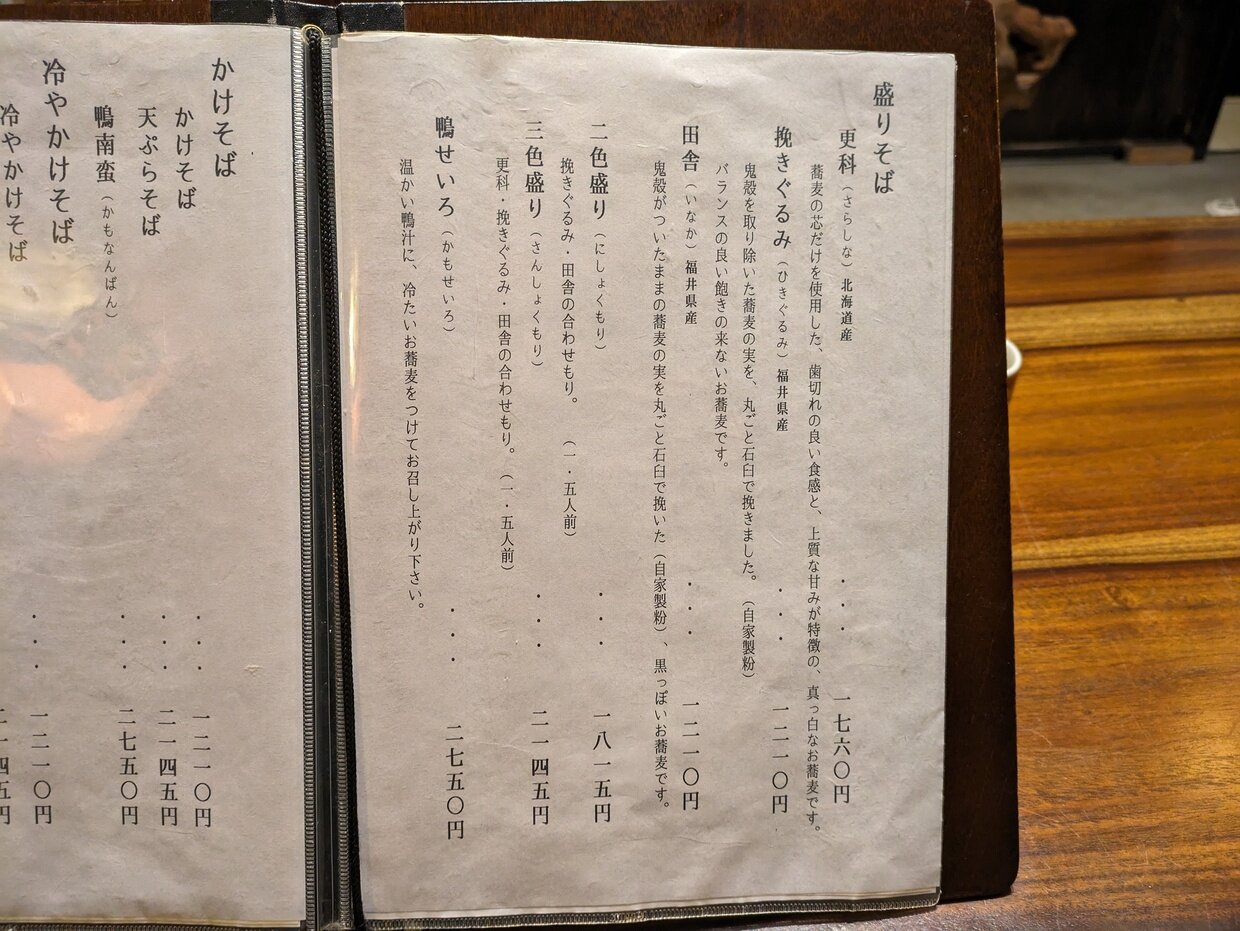 盛りそば
更科（さらしな）北海道産 ・・・ 一七六〇円
蕎麦の芯だけを使用した、歯切れの良い食感と、上質な甘みが特徴の、真っ白なお蕎麦です。
挽きぐるみ（ひきぐるみ）福井県産 ・・・ 一二一〇円
鬼殻を取り除いた蕎麦の実を、丸ごと石臼で挽きました。（自家製粉）
バランスの良い飽きの来ないお蕎麦です。
田舎（いなか）福井県産 ・・・ 一二一〇円
鬼殻がついたままの蕎麦の実を丸ごと石臼で挽いた（自家製粉）、黒っぽいお蕎麦です。
二色盛り（にしょくもり） ・・・ 一八一五円
挽きぐるみ・田舎の合わせもり。（一・五人前）
三色盛り（さんしょくもり） ・・・ 二一四五円
更科・挽きぐるみ・田舎の合わせもり。（一・五人前）
鴨せいろ（かもせいろ） ・・・ 二七五〇円
温かい鴨汁に、冷たいお蕎麦をつけてお召し上がり下さい。
かけそば
かけそば ・・・ 一二一〇円
天ぷらそば ・・・ 二一四五円
鴨南蛮（かもなんばん） ・・・ 二七五〇円
冷やかけそば
冷やかけそば ・・・ 一二一〇円